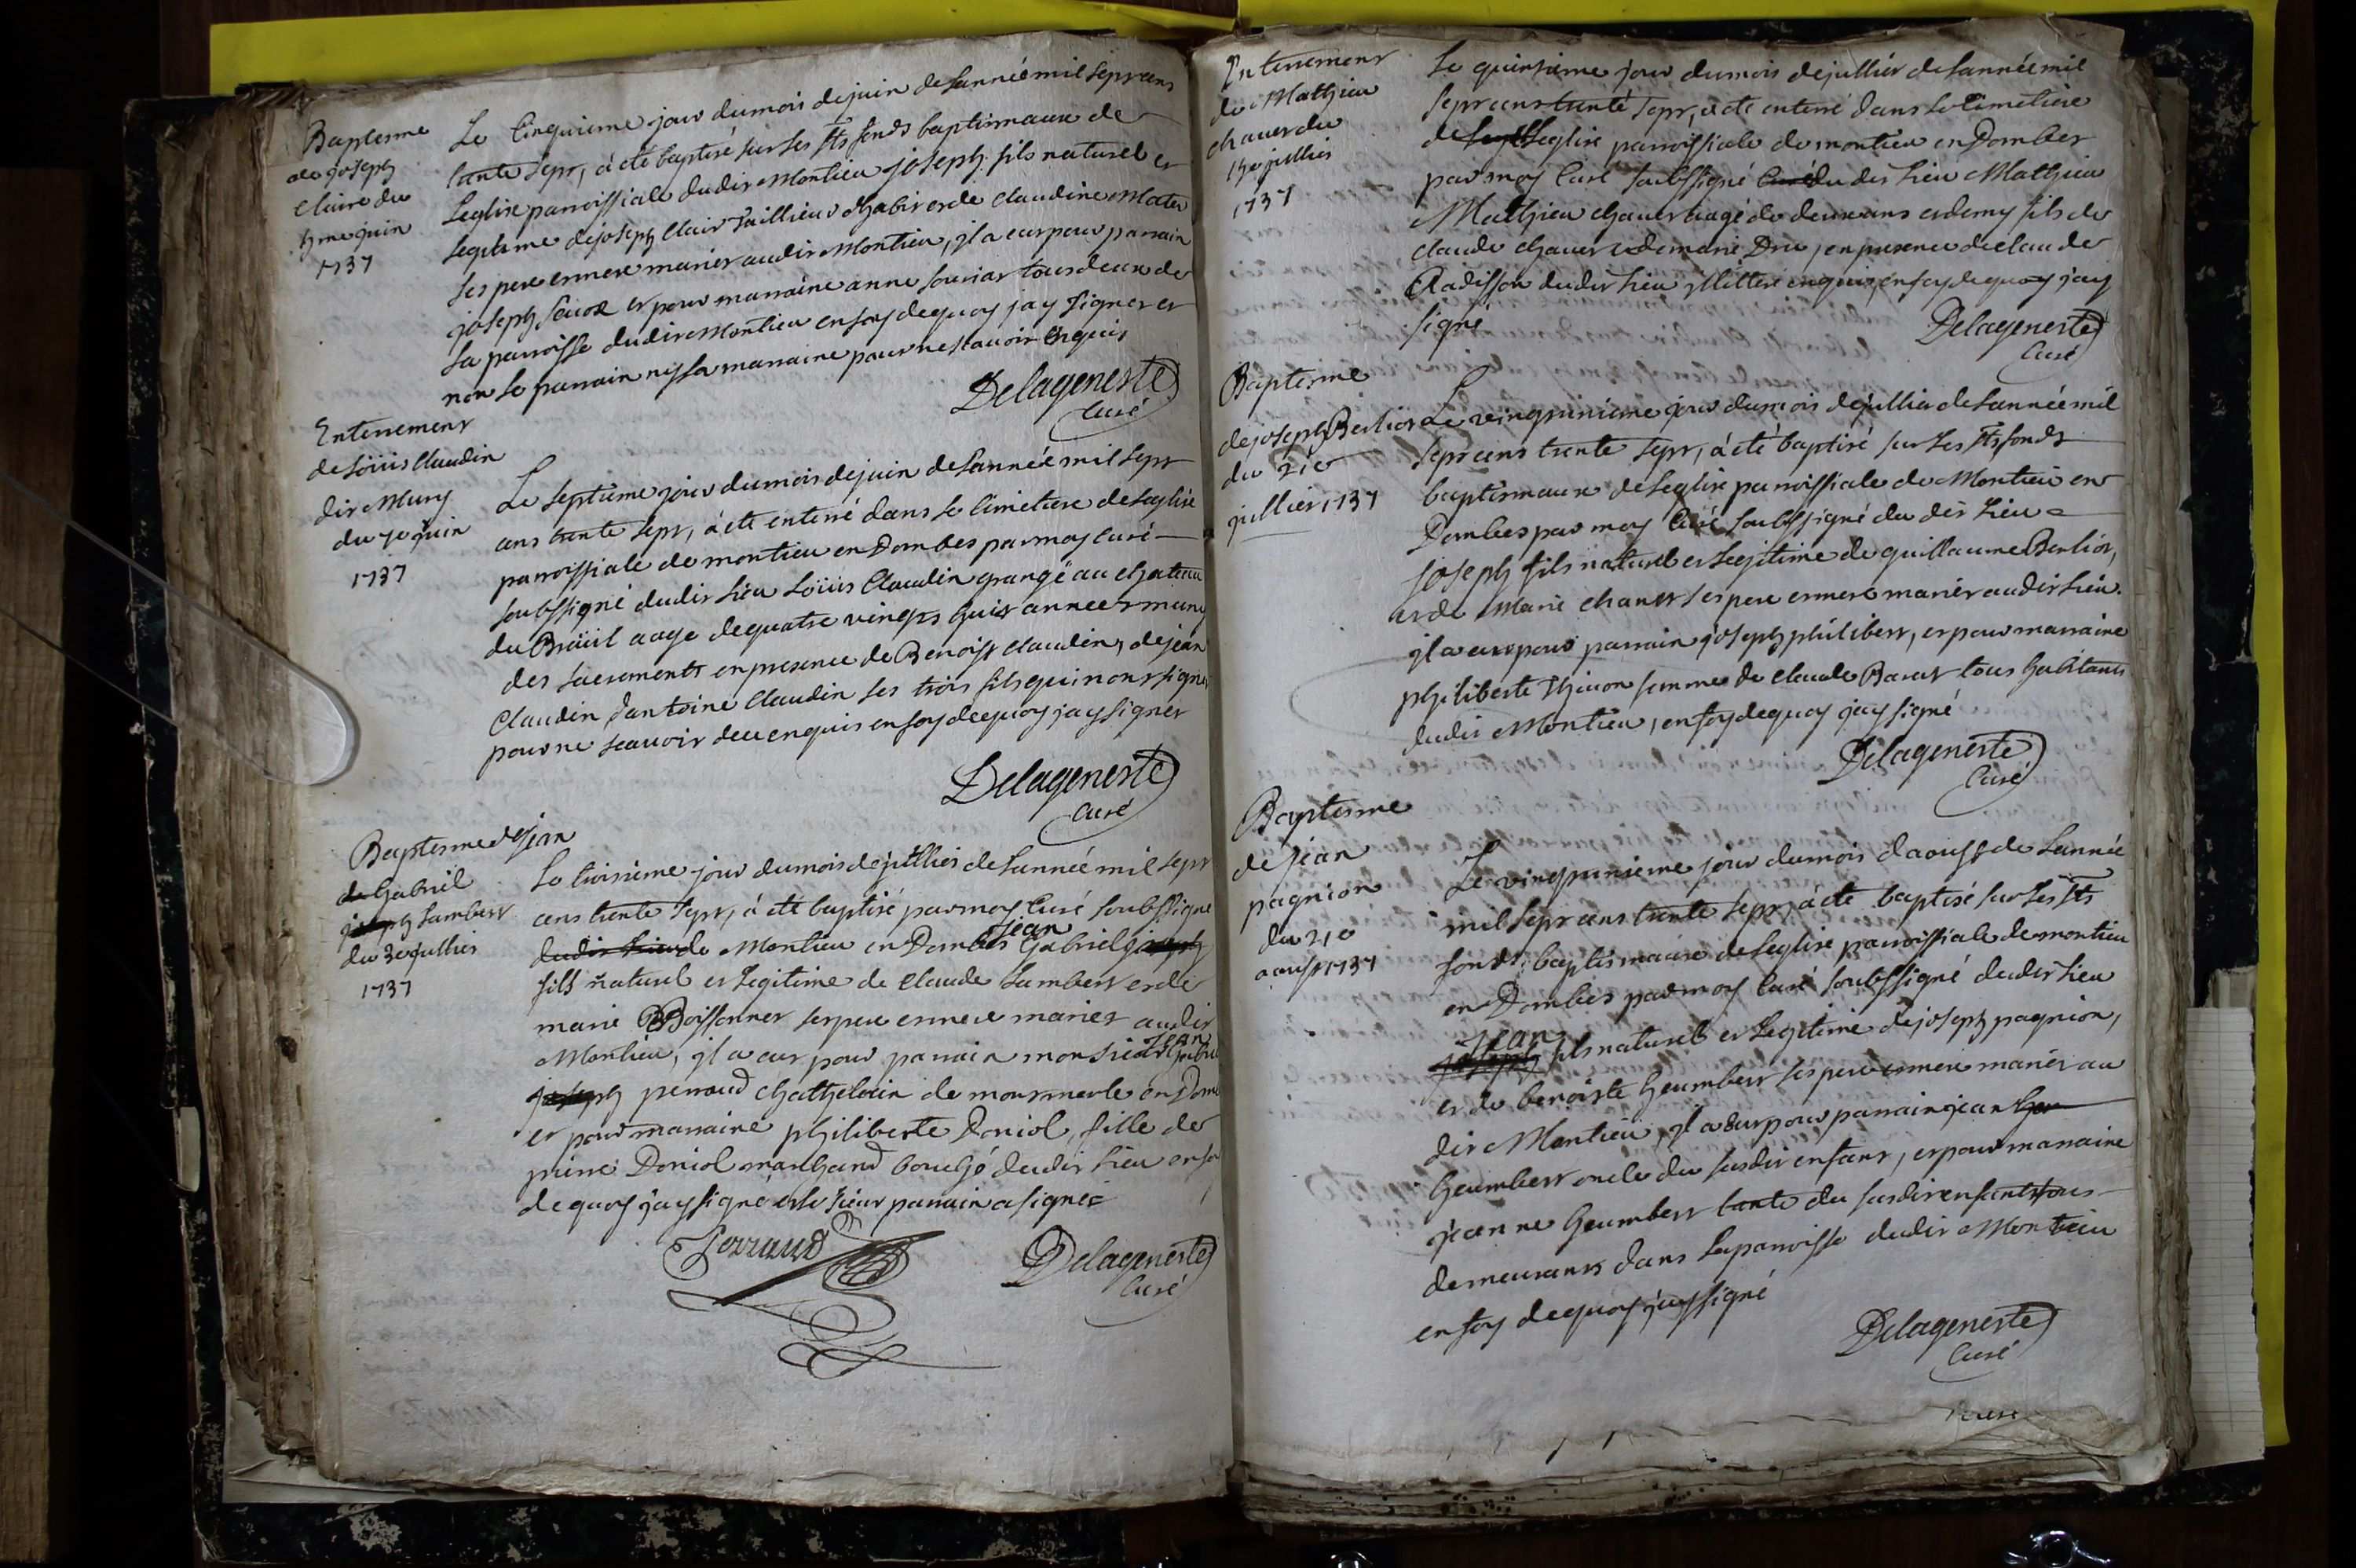 Baptesme
de joseph
Claire du
5me juin
1737
Le Cinquieme jour dumois dejuin de Lannée mil Sept cens
trente Sept, à eté baptisé sur Les Sts fonds baptismaux de
Leglise parroissiale dudit Montieu joseph fils naturel et
Legitime de joseph Clair Taillieur d'habit et de Claudine Mater
Ses pere et mere mariés audit Montieu, jl a eut pour parrain
joseph et pour marraine anne tous deux de
La parroisse dudit Montieu en foy dequoy jay Signer et
non Le parrain ny La marraine pour ne scavoir Enquis
Delageneste
Curé
Enterrement
de Loüis Claudin
dit Mury
du 7e juin
1737
Le Septieme jour dumois dejuin de Lannée mil Sept
cens trente Sept, à eté enterré dans Le Cimetiere de Leglise
parroissiale de montieu en Dombes par moy Curé
Soubssigné dudit Lieu Loüis Claudin grangé au chateau
du Breüil aagé dequatre vingts huit années muny
des Sacrements en presence de Benoist Claudin, de jean
Claudin d'antoine Claudin Ses trois fils qui n'ont signé
pour ne Scavoir deu enquis en foy dequoy jay Signer
Delageneste
Curé
Baptesme de jean
de Gabriel
joseph Lambert
du 3e jullier
1737
Le troisieme jour dumois dejullier de Lannée mil Sept
cens trente Sept, à eté baptisé par moy Curé Soubssigné
dudit Lieu de Montieu en Dombes jean Gabriel joseph
fils naturel et Legitime de Claude Lambert et de
marie Boissonnet Ses pere et mere mariés audit
Montieu, jl a eut pour parrain monsieur jean Gabriel
joseph perroud chatthelain de monmerle en Dombes
et pour marraine philiberte Doriol, fille de
pierre Doriol marchand dudit Lieu en foy
dequoy jay signé et Le Sieur parrain a signé
Perroud
Delageneste
Curé
Enterrement
de Mathieu
chavet du
15e jullier
1737
Le quinsieme jour dumois dejullier de Lannée mil
Sept cens trente Sept, à eté enterré dans Le Cimetiere
de Leglise parroissiale de montieu en Dombes
par moy Curé Soubssigné Curé du dit Lieu Mathieu
Mathieu chavet aagé de deux ans et demy fils de
Claude chavet et de marie Dru, en presence de Claude
Radisson dudit Lieu jllitteré enquis, en foy dequoy jay
signé
Delageneste
Curé
Baptesme
de joseph Berliot
du 21e
jullier 1737
Le vingtunieme jour dumois dejullier de Lannée mil
Sept cens trente Sept, à eté baptisé sur Les Sts fonds
baptismaux de Leglise parroissiale de Montieu en
Dombes par moy Curé Soubssigné du dit Lieu
joseph fils naturel et Legitime de guillaume Berliot,
et de Marie chavet Ses pere et mere mariés audit Lieu.
jl a eut pour parrain joseph philibert, et pour marraine
philiberte Thivon femme de Claude Barut tous habitants
dudit Montieu, en foy dequoy jay signé
Delageneste
Curé
Baptesme
de jean
pagnion
du 21e
aoust 1737
Le vingtunieme jour dumois daoust de Lannée
mil Sept cens trente Sept, à eté baptisé sur Les Sts
fonds baptismaux de Leglise parroissiale de montieu
en Dombes par moy Curé Soubssigné dudit Lieu
jean
joseph fils naturel et Legitime de joseph pagnion,
et de benoiste heumbert Ses pere et mere mariés au
dit Montieu, jl a eut pour parrain jean
heumbert oncle du susdit enfant, et pour marraine
jeanne heumbert tante du susdit enfant tous
demeurants dans La parroisse dudit Montieu
en foy dequoy jay signé
Delageneste
Curé